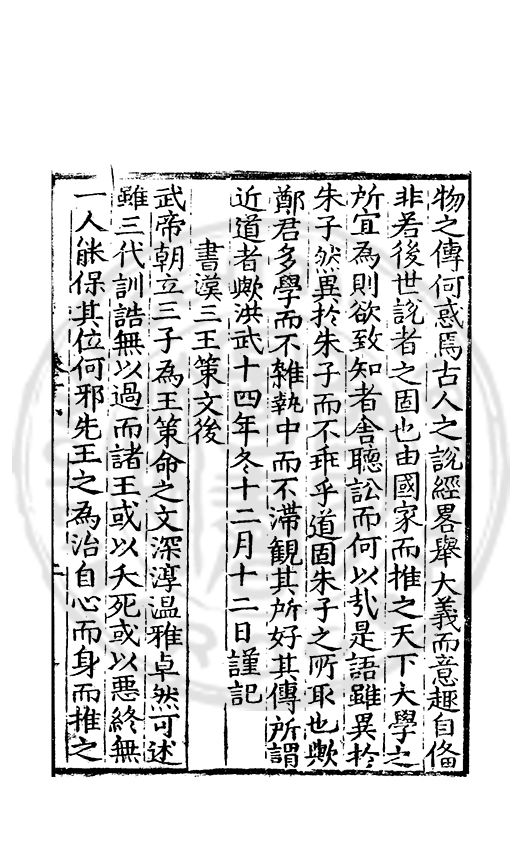 物之傳何惑焉古人之說經畧舉大義而意趣自俻
非若後世說者之固也由國家而推之天下大學之
所宜為則欲致知者舎聽訟而何以㢤是語雖異於
朱子然異於朱子而不乖乎道固朱子之所取也歟
鄭君多學而不雜執中而不滯觀其所好其傳所謂
近道者歟洪武十四年冬十二月十二日謹記
書漢三王策文後
武帝朝立三子為王策命之文深淳温雅卓然可述
雖三代訓誥無以過而諸王或以夭死或以惡終無
一人能保其位何邪先王之為治自心而身而推之